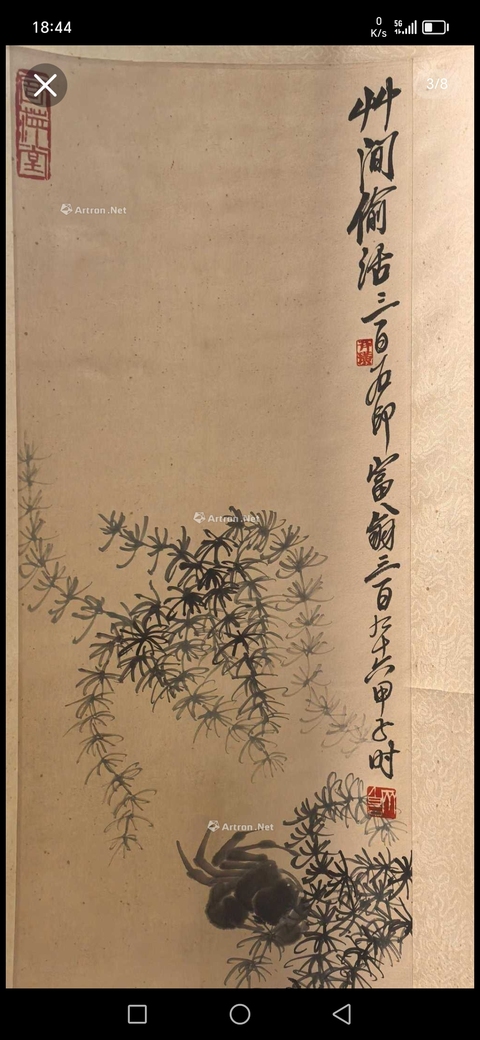 18:44
0
K/s
5G
3/8
艸間偷活三百石印富翁三百九十六甲子时
Artron.Net
Artron.Net
Artron.Net